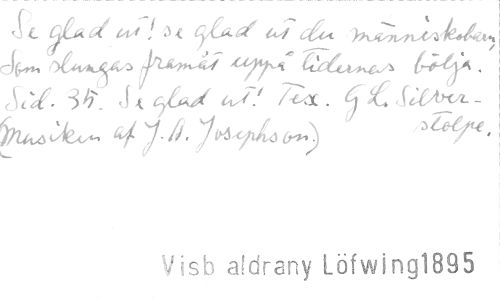 Se glad ut! se glad ut du människobarn
Som slungas framåt uppå tidernas bölja.
Sid. 35. Se glad ut! Tex. G L. Silver-
stolpe.
(Musiken af J. A. Josephson.)
Visb aldrany Löfwing1895